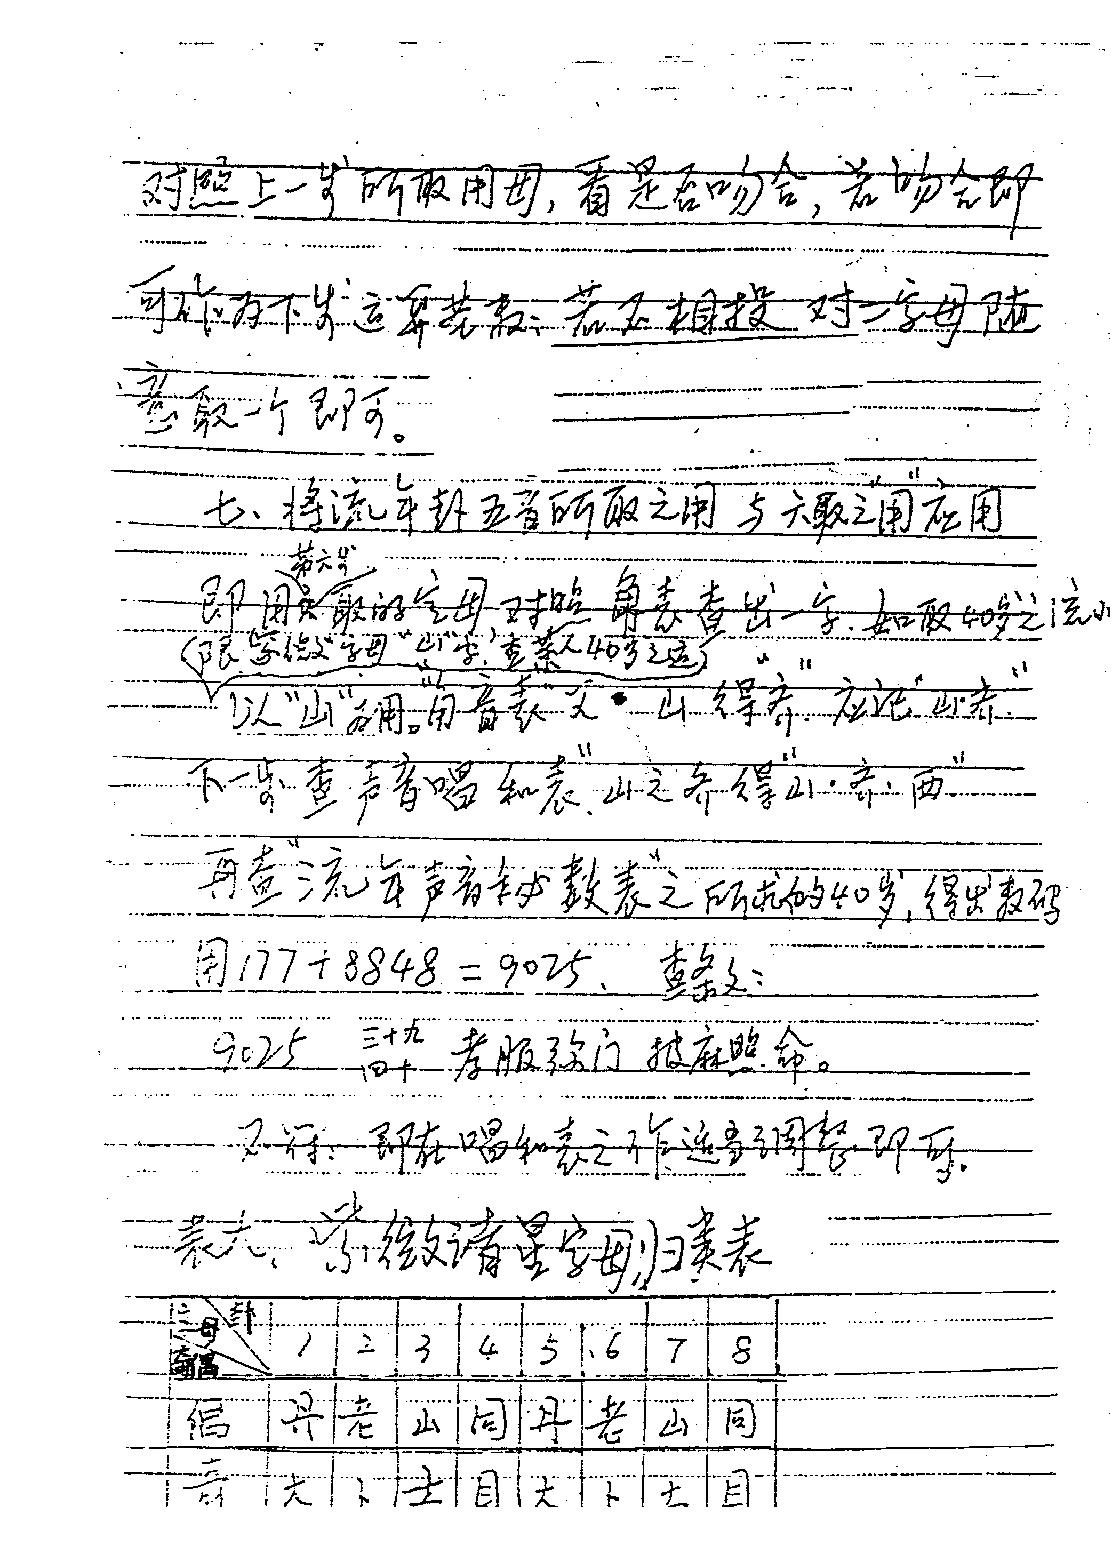 对照上一步所取用母，看是否吻合，若吻合即
可作为下步运算基数；若不相投 对二字母随
意取一个即可。
七、将流年卦五音所取之用与六取之"用"应用
第六步
即用取的字母对照角表查出一字．如取40岁之流
(限紫微"字母"山"字，查某人40岁之运)
以"山"为用。"角音表"父·山得"齐"．应记"山·齐"
下一步查声音唱和表"，山之齐得"山·齐·西"
再查"流年声音秘数表"之所求的40岁，得出数码
用177+8848=9025、 查条文：
9025 三十九 四十 孝服 门 披麻照命。
不符：即在唱和表之作适当调整即可．
表六、紫微诸星字母归类表
母 卦 奇偶 1 2 3 4 5 6 7 8
偶 丹 老 山 同 丹 老 山 同
奇 大 卜 士 目 大 卜 士 目